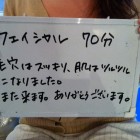 フェイシャル 70分
毛穴はスッキリ、肌はツルツル
になりました。
また来ます。ありがとうございます。